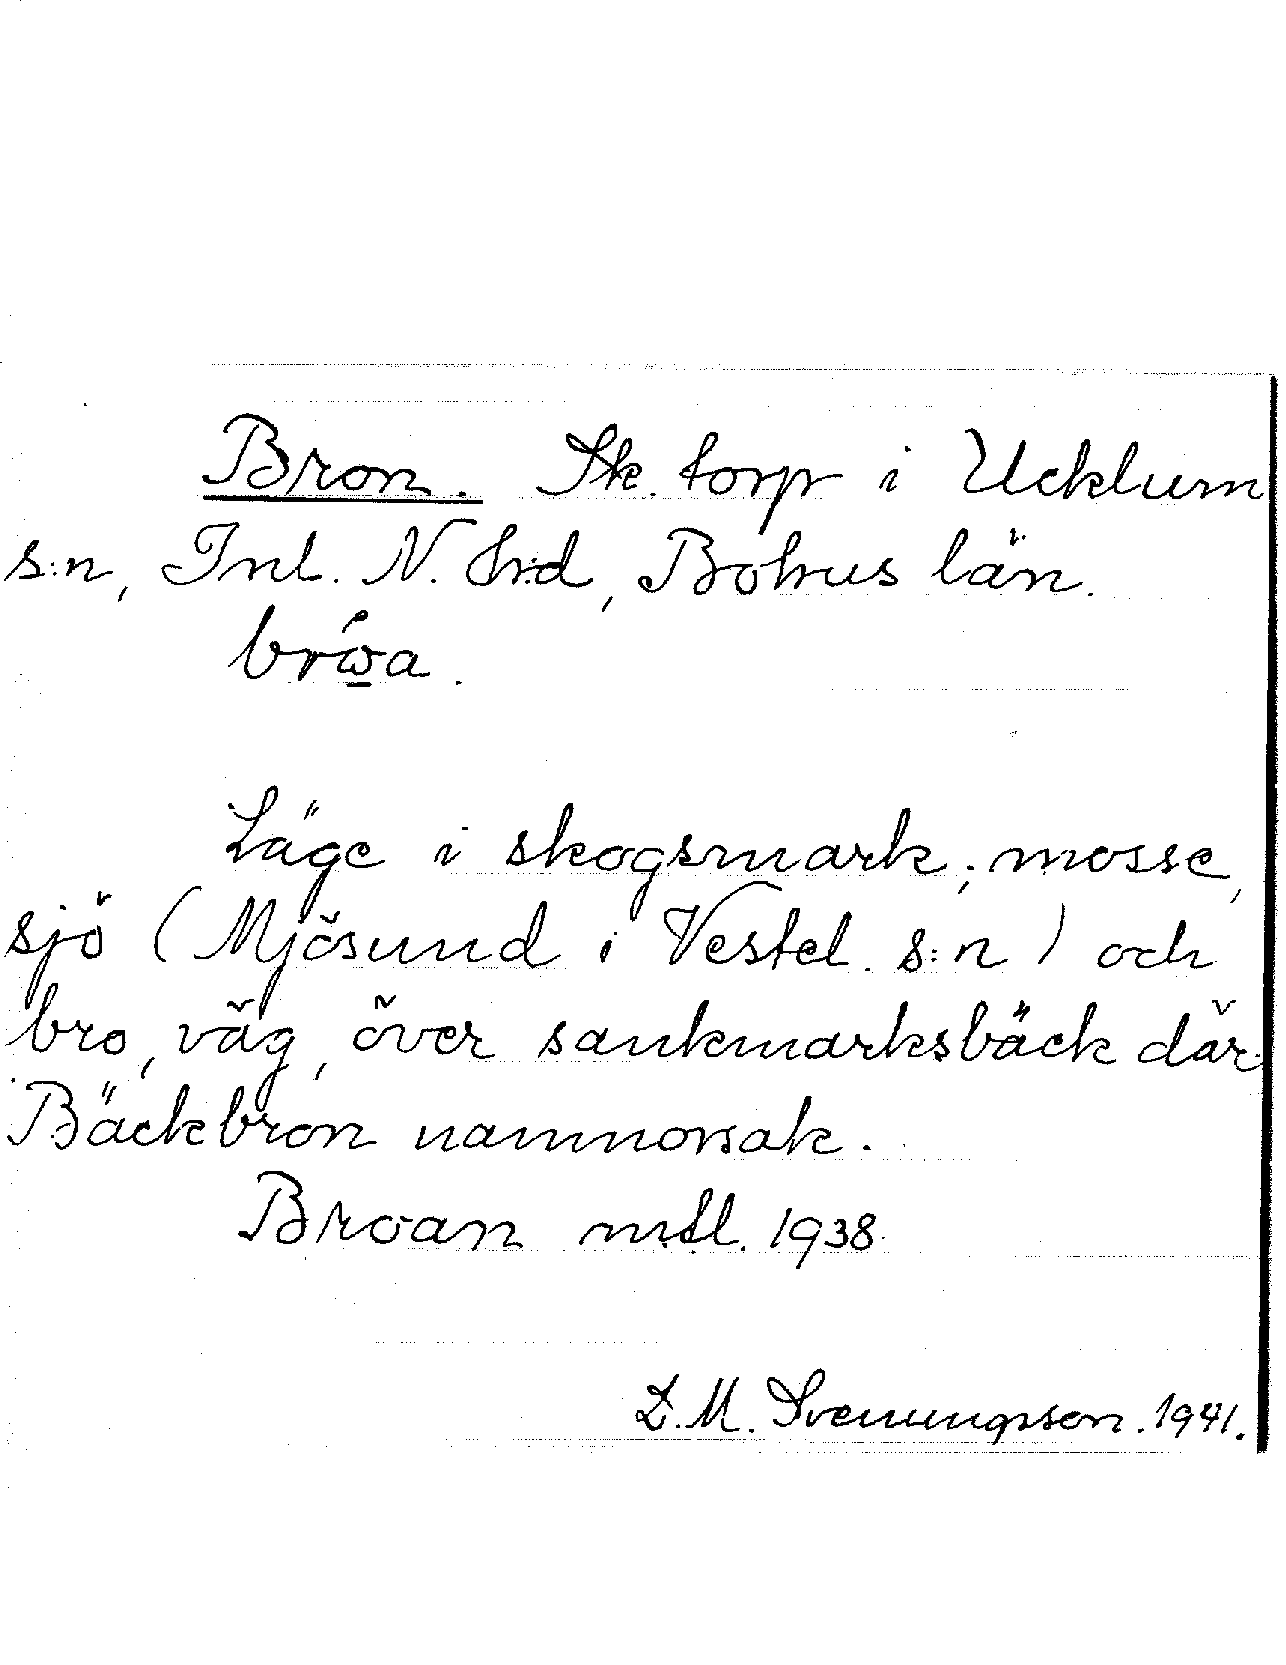 Bron. Sk. torp i Ucklum
s:n, Inl. N. Hrd, Bohus län.
brώa.
Läge i skogsmark; mosse,
sjö (Mjösund i Vestel. s:n) och
bro, väg, över sankmarksbäck där
Bäckbron namnorsak.
Broan mtl. 1938
D.M. Svenungsson. 1941.